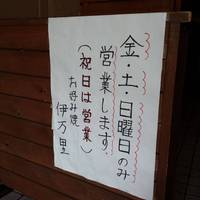 金・土・日曜日のみ
営業します.
(祝日は営業)
お好み焼
伊万里